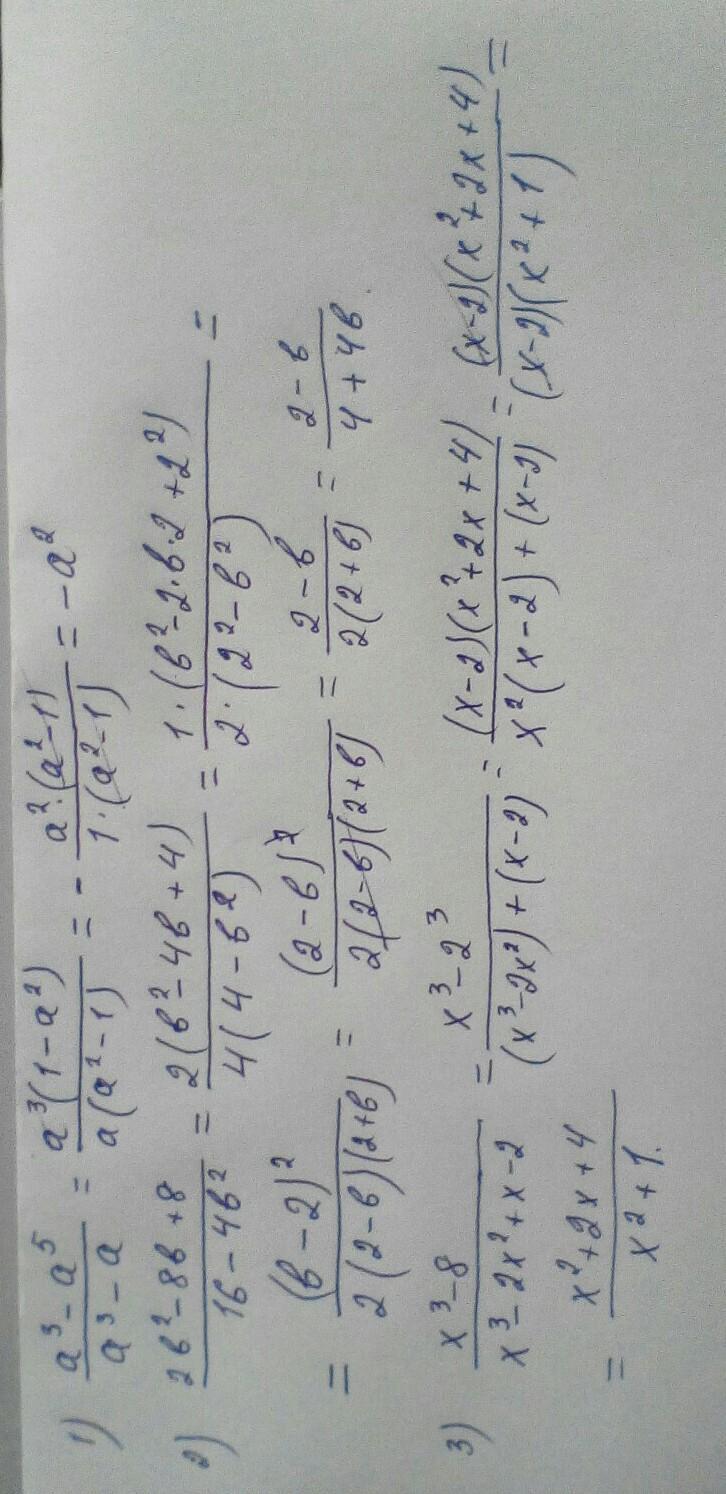 1) (a³ - a⁵)/(a³ - a) = (a³(1 - a²))/(a(a² - 1)) = - (a²·(a² - 1))/(1·(a² - 1)) = -a²
2) (2в² - 8в + 8)/(16 - 4в²) = (2(в² - 4в + 4))/(4(4 - в²)) = (1·(в² - 2·в·2 + 2²))/(2·(2² - в²)) =
= (в - 2)²/(2(2 - в)(2 + в)) = (2 - в)²/(2(2 - в)(2 + в)) = (2 - в)/(2(2 + в)) = (2 - в)/(4 + 4в).
3) (x³ - 8)/(x³ - 2x² + x - 2) = (x³ - 2³)/((x³ - 2x²) + (x - 2)) = ((x - 2)(x² + 2x + 4))/(x²(x - 2) + (x - 2)) = ((x - 2)(x² + 2x + 4))/((x - 2)(x² + 1)) =
= (x² + 2x + 4)/(x² + 1).